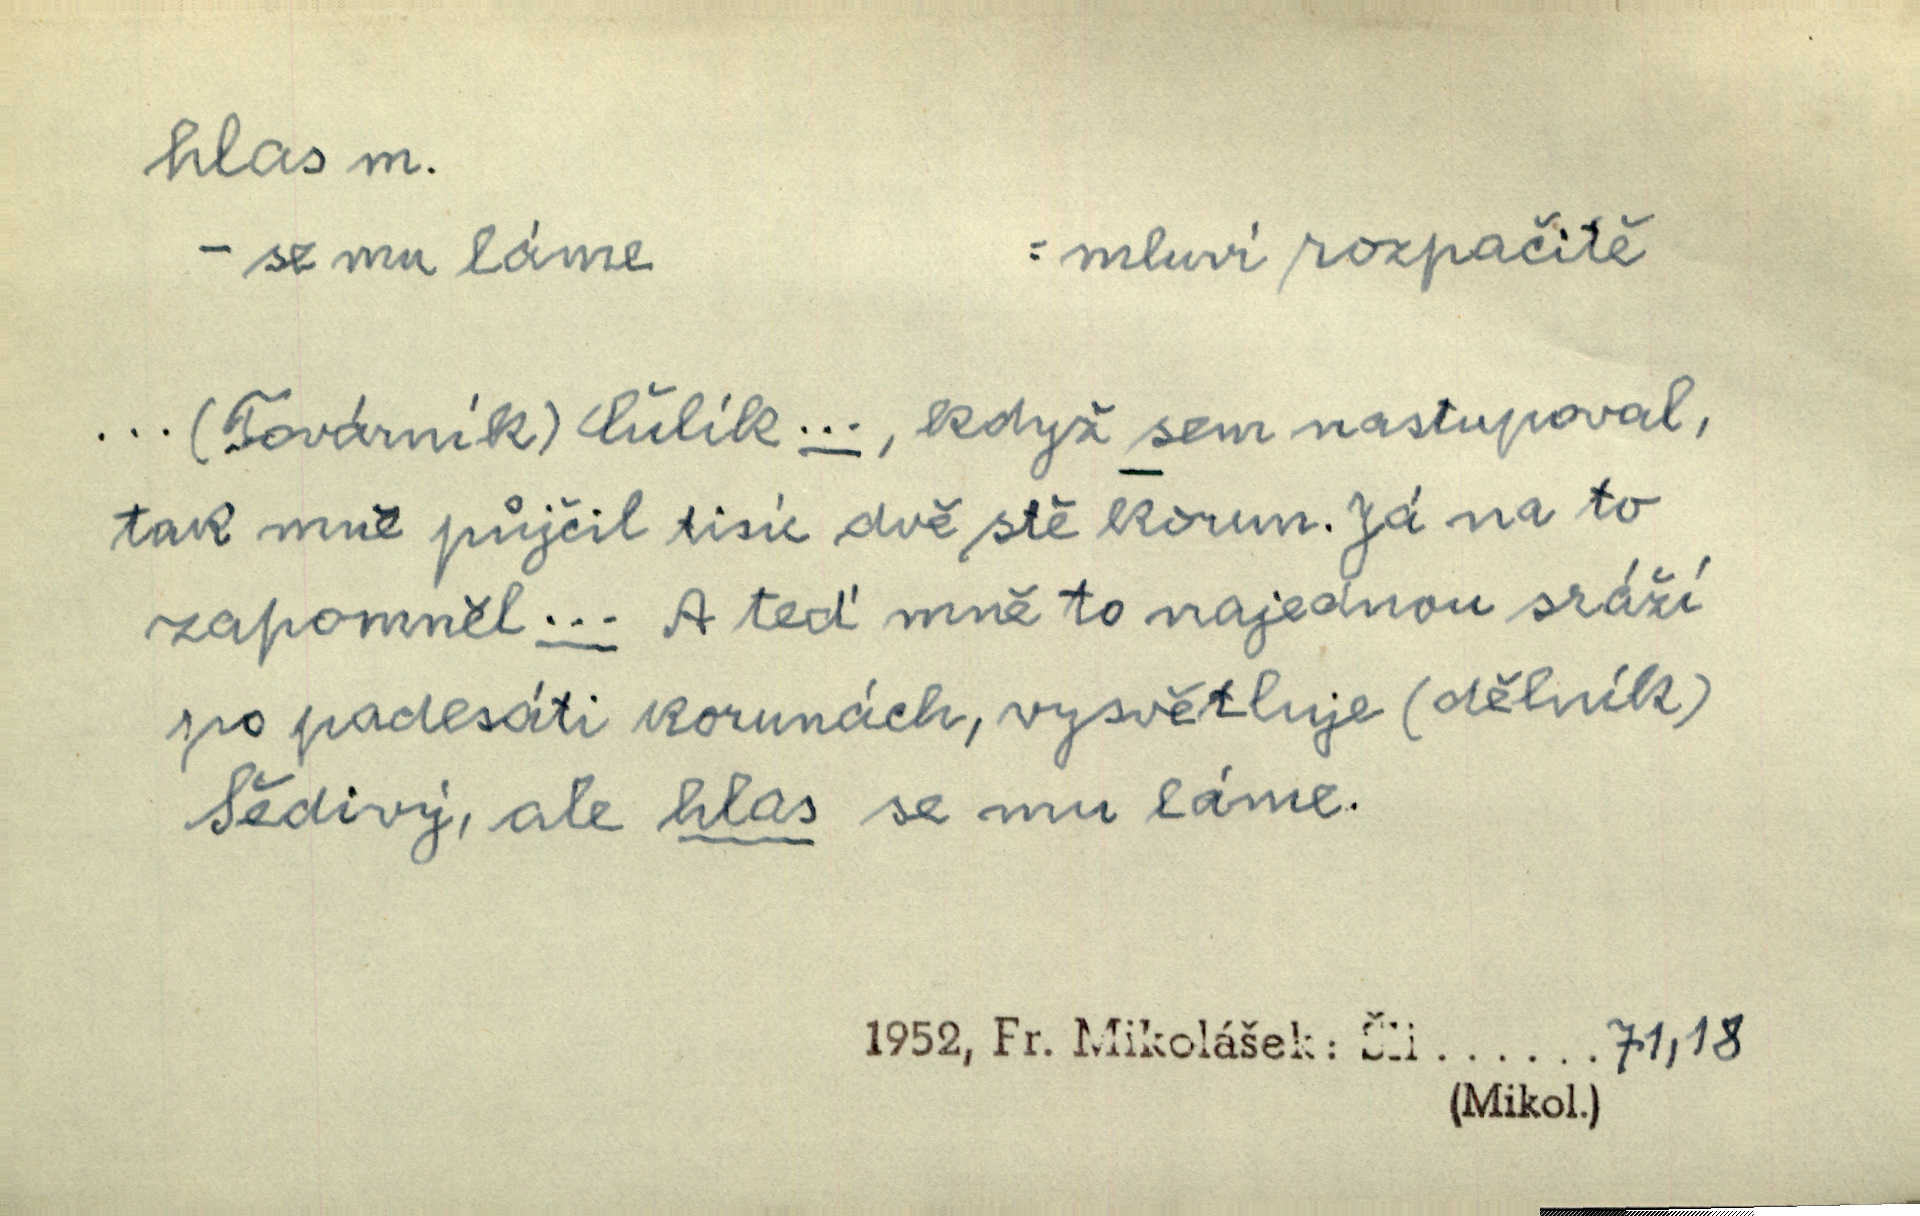 hlas m.
– se mu láme = mluví rozpačitě
...(Továrník) Čulík ..., když sem nastupoval,
tak mně půjčil tisíc dvě stě korun. Já na to
zapomněl ... A teď mně to najednou sráží
po padesáti korunách, vysvětluje (dělník)
Šedivý, ale hlas se mu láme.
1952, Fr. Mikolášek: Šli ...... 71,18
(Mikol.)